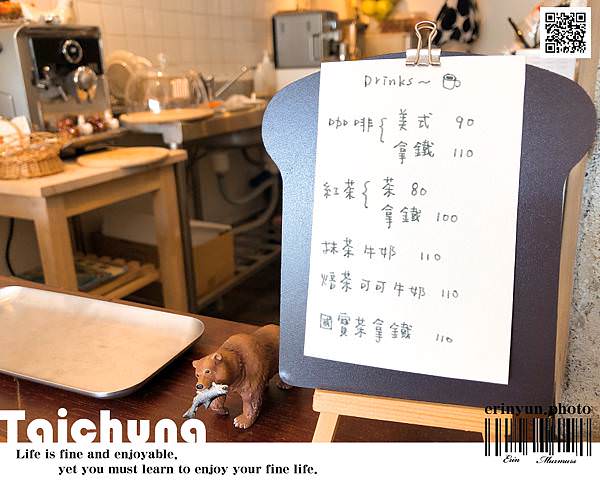 Drinks~
咖啡{美式 90
拿鐵 110
紅茶{茶 80
拿鐵 100
抹茶牛奶 110
焙茶可可牛奶 110
國寶茶拿鐵 110
Taichung
Life is fine and enjoyable,
yet you must learn to enjoy your fine life.
erinyun.photo
Erin Murmurs